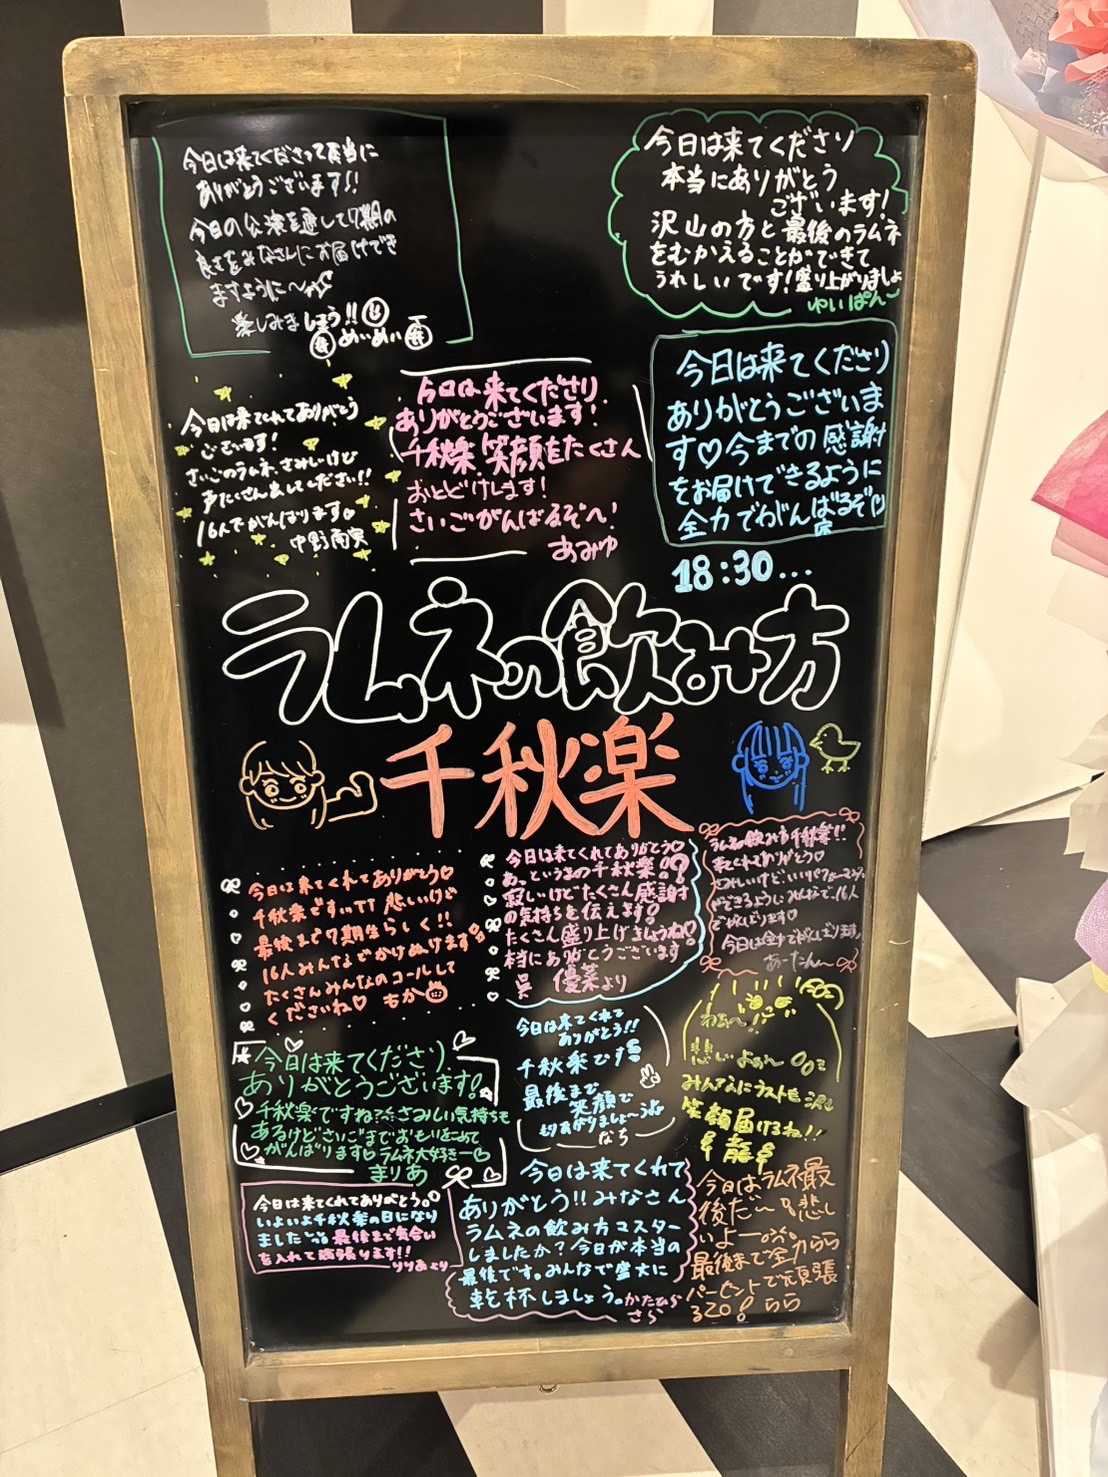 今日は来てくださって本当に
ありがとうございます!!
今日の公演を通して7期の
良さをみなさんにお届けでき
ますように〜
楽しみましょう!!
めいめい
今日は来てくださり
本当にありがとう
ございます!
沢山の方と最後のラムネ
をむかえることができて
うれしいです!盛り上がりましょ
ゆいぱん〜
今日は来てくれてありがとう
ございます!
さいごのラムネ、さみしいけど
声たくさん出してください!!
16人でがんばります
中野南実
今日は来てくださり
ありがとうございます!
千秋楽 笑顔をたくさん
おとどけします!
さいごがんばるぞへ!
あみゆ
今日は来てくださり
ありがとうございま
す♡今までの感謝
をお届けできるように
全力でがんばるぞ
18:30...
ラムネの飲み方
千秋楽
今日は来てくれてありがとう♡
千秋楽ですねTT 悲しいけど
最後まで7期生らしく!!
16人みんなでかけぬけます
たくさんみんなのコールして
くださいね♡ もか
今日は来てくれてありがとう♡
あっというまの千秋楽
寂しいけどたくさん感謝
の気持ちを伝えます
たくさん盛り上げましょうね
本当にありがとうございます
優菜より
ラムネの飲み方千秋楽!!
来てくれてありがとう♡
できるように みんなで、16人
で頑張ります♡
今日は全力でがんばります
あーたん〜
今日は来てくださり
ありがとうございます!
千秋楽ですね さみしい気持ちも
あるけどさいごまでおもいをこめて
がんばります ラムネ大好きー
まりあ
今日は来てくれて
ありがとう!!
千秋楽です
最後まで
笑顔で
もりあがりましょー
なち
わぁ〜
悲しいよぉ〜
みんなにラストも沢山
笑顔届けるね!!
龍
今日は来てくれてありがとう。
いよいよ千秋楽の日になり
ました 最後まで気合い
を入れて頑張ります!!
りりあより
今日は来てくれて
ありがとう!! みなさん
ラムネの飲み方マスター
しましたか?今日が本当の
最後です。みんなで盛大に
乾杯しましょう。かたひら
さら
今日はラムネ最
後だ〜 悲し
いよー
最後まで全力らら
パーセントで頑張
るZO! らら